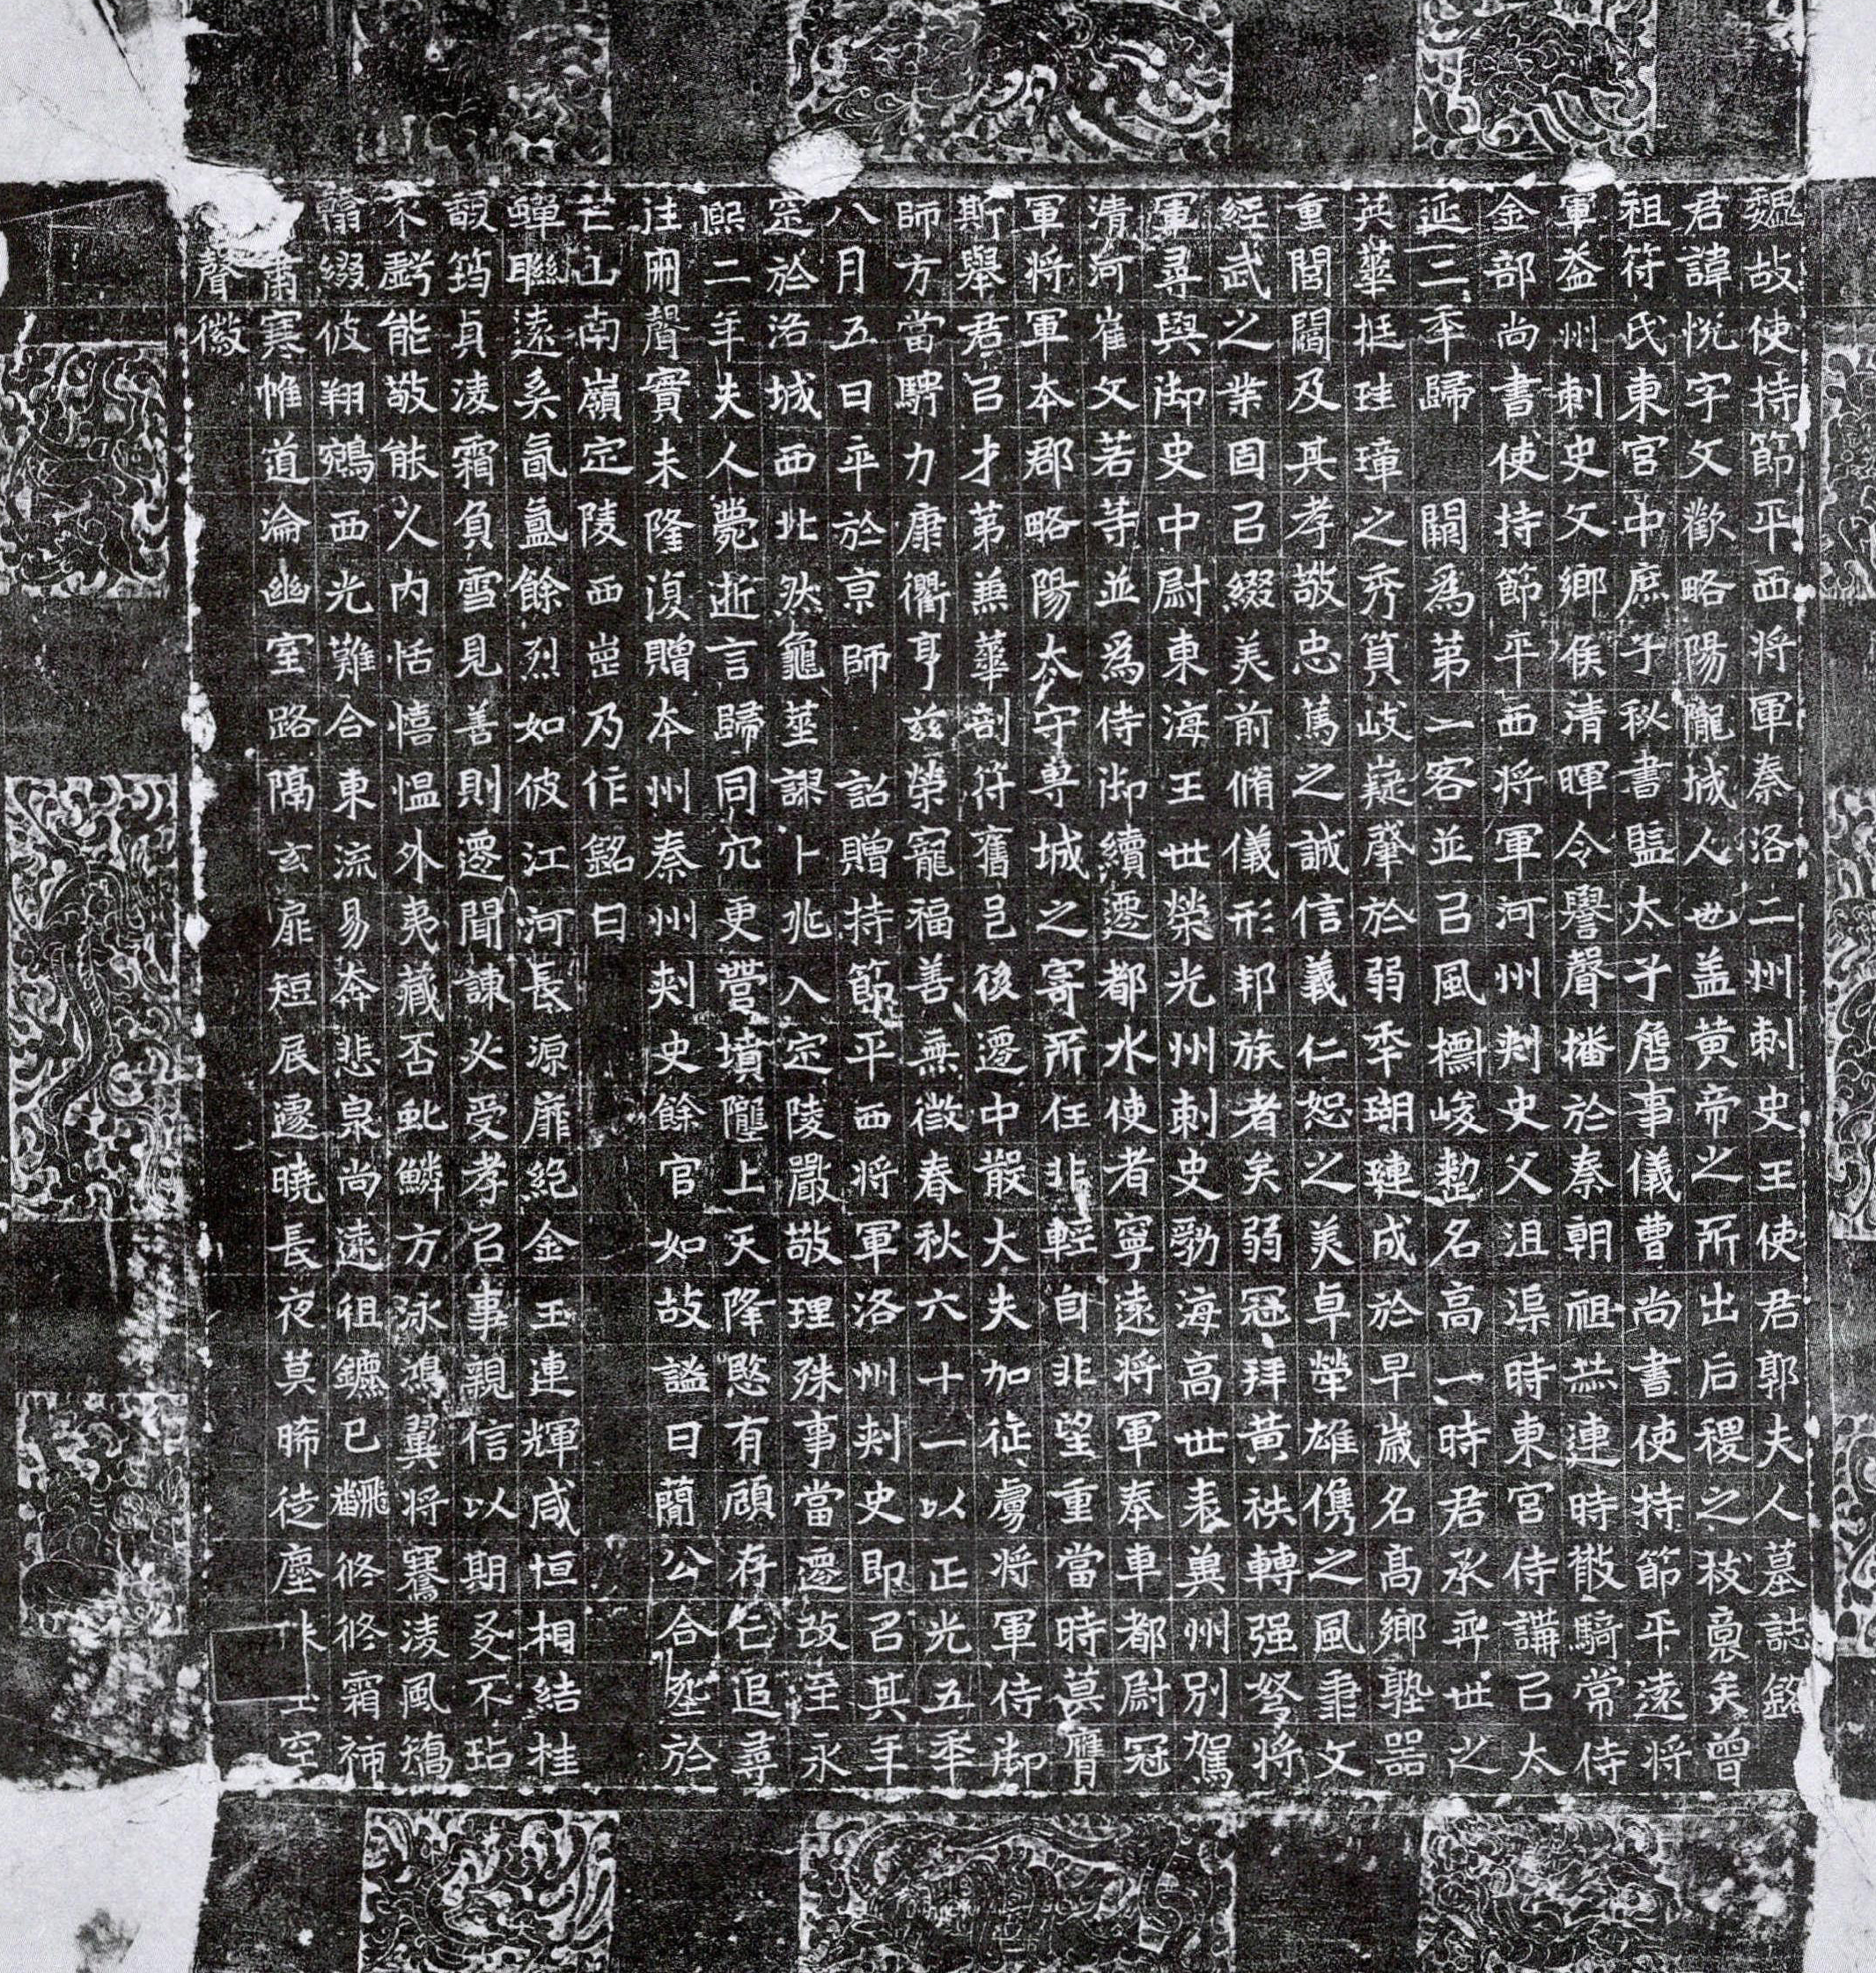 魏故使持節平西將軍秦洛二州刺史王使君郭夫人墓誌銘
君諱悅字文歡略陽隴城人也蓋黃帝之所出后稷之枝裔矣曾
祖符氏東宮中庶子秘書監太子詹事儀曹尚書使持節平遠將
軍益州刺史父鄉侯清暉令譽聲播於秦朝祖恭連時散騎常侍
金部尚書使持節平西將軍河州刺史父沮渠時東宮侍講已太
延三年歸闕為第一客並已風櫚峻整名高一時君承弈世之
英華挺珪璋之秀質岐嶷肇於弱年瑚璉成於早歲名高鄉塾器
重閭闔及其孝敬忠篤之誠信義仁恕之美卓犖雄儁之風秉文
經武之業固已綴美前脩儀形邦族者矣弱冠拜黃袟轉强弩將
軍尋與御史中尉東海王世榮光州刺史勃海高世表兾州別駕
清河崔文若等並為侍御續遷都水使者寧遠將軍奉車都尉冠
軍將軍本郡略陽太守專城之寄所任非輕自非望重當時莫膺
斯舉君已才第兼華剖符舊邑後遷中散大夫加征虜將軍侍御
師方當騁力康衢亨茲榮寵福善無徵春秋六十一以正光五年
八月五日卒於京師詔贈持節平西將軍洛州刺史即已其年
窆於洛城西北然龜筮謀卜兆入定陵嚴敬理殊事當遷改至永
熙二年夫人薨逝言歸同穴更營墳隴上天降愍有顧存亡追尋
往冊聲實未隆復贈本州秦州刺史餘官如故謚曰蕳公合塟於
芒山南嶺定陵西崗乃作銘曰
蟬聯遠系氤氳餘烈如彼江河長源靡絕金玉連輝咸恒相結桂
馥筠貞淩霜負雪見善則遷聞諫必受孝已事親信以期友不玷
不虧能敬能久內恬憘慍外夷藏否虬鱗方泳鴻翼將騫淩風矯
翮綴彼翔鵷西光難合東流易奔悲泉尚遠徂鑣已飜修修霜祔
肅寒帷道淪幽室路隔玄扉短辰遽曉長夜莫晞徒塵空
聲徽